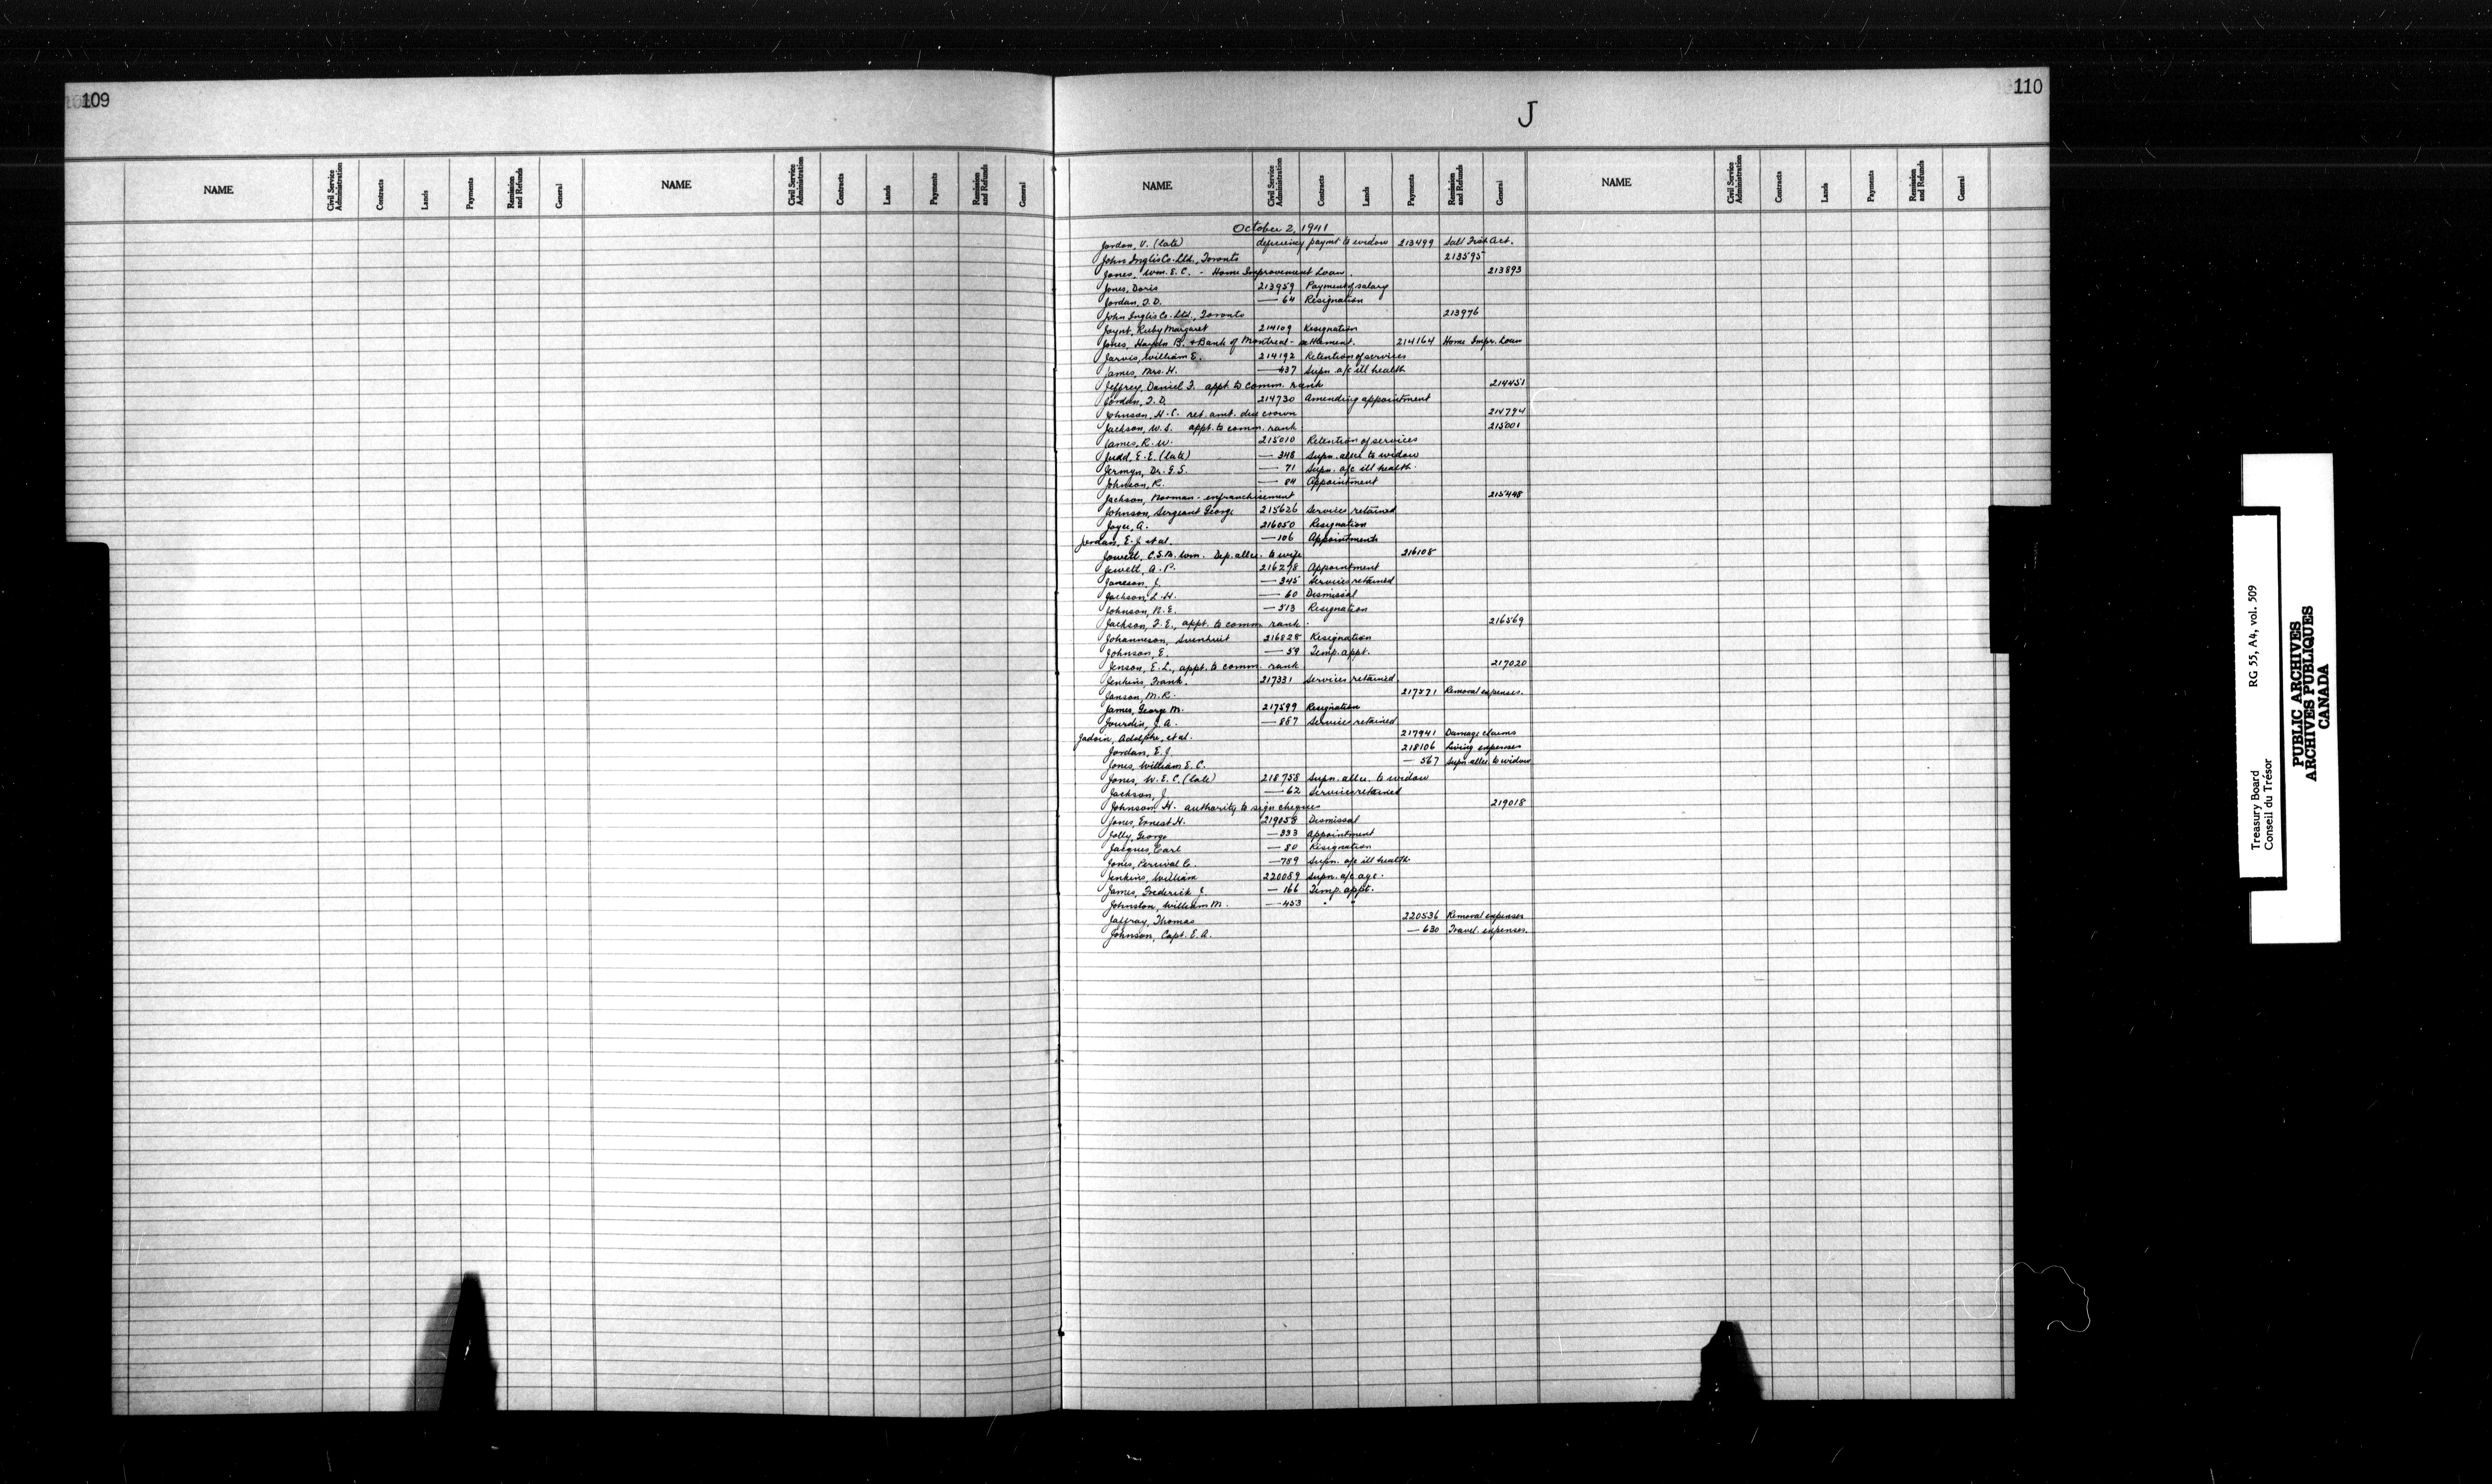 109
110
J
NAME Civil Service Administration Contracts Lands Payments Remission and Refunds General NAME Civil Service Administration Contracts Lands Payments Remission and Refunds General
NAME Civil Service Administration Contracts Lands Payments Remission and Refunds General NAME Civil Service Administration Contracts Lands Payments Remission and Refunds General
October 2, 1941
Jordan, V. (late) deficiency paymt to widow 213499 Salt Fish Act.
John Inglis Co. Ltd., Toronto 213595
Jones, Wm. E. C. - Home Improvement Loan. 213893
Jones, Doris 213959 Payment of salary
Jordan, J. D. — 64 Resignation
John Inglis Co. Ltd., Toronto 213976
Joynt, Ruby Margaret 214109 Resignation
Jones, Haydn B. + Bank of Montreal - settlement. 214164 Home Impr. Loan
Jarvis, William E. 214192 Retention of services
James, Mrs. H. — 437 Supn. a/c ill health
Jeffrey, Daniel F. appt. to comm. rank 214451
Jordan, J. D. 214730 Amending appointment
Johnson, H. C. ret. amt. due crown 214794
Jackson, W. S. appt. to comm. rank 215001
James, R. W. 215010 Retention of services
Judd, E. E. (late) — 348 Supn. allce to widow
Jermyn, Dr. G. S. — 71 Supn. a/c ill health.
Johnson, R. — 84 Appointment
Jackson, Norman - enfranchisement 215448
Johnson, Sergeant George 215626 Services retained
Joyce, A. 216050 Resignation
Jordan, E. J. et al. — 106 Appointments
Jowett, C.S.M. Wm. Dep. allce. to wife 216108
Jewell, A. P. 216278 Appointment
Janeson, J. — 345 Services retained
Jackson, L. H. — 60 Dismissal
Johnson, N. E. — 513 Resignation
Jackson, F. E., appt. to comm. rank. 216569
Johanneson, 216828 Resignation
Johnson, E. — 59 Temp. appt.
Jenson, E. L., appt. to comm. rank 217020
Jenkins, Frank. 217331 Services retained
Janson, M. R. 217571 Removal expenses.
James, George M. 217599 Resignation
Jourdin, J. A. — 887 Service retained
Jadoin, Adolphe, et al. 217941 Damage claims
Jordan, E. J. 218106 Living expenses
Jones, William E. C. — 567 Supn allce. to widow
Jones, W. E. C. (late) 218758 Supn. allce. to widow
Jackson, J. — 62 Service retained
Johnson, H. authority to sign cheques 219018
Jones, Ernest H. 219058 Dismissal
Jolly, George — 333 Appointment
Jacques, Earl — 80 Resignation
Jones, Percival C. — 789 Supn. a/c ill health.
Jenkins, William 220089 Supn. a/c age.
James, Frederick J. — 166 Temp. appt.
Johnston, William M. — 453 " "
Jaffray, Thomas 220536 Removal expenses
Johnson, Capt. E. A. — 630 Travel. expenses.
Treasury Board RG 55, A4, vol. 509
Conseil du Trésor
PUBLIC ARCHIVES
ARCHIVES PUBLIQUES
CANADA